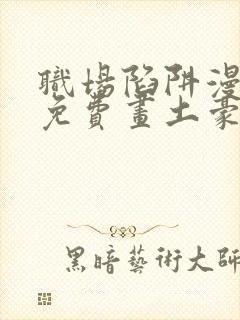 職場陷阱漫
免費畫土豪
黑暗藝術大師